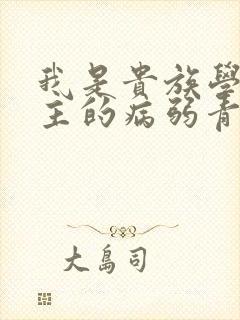 我是貴族學
主的病弱青
大島司